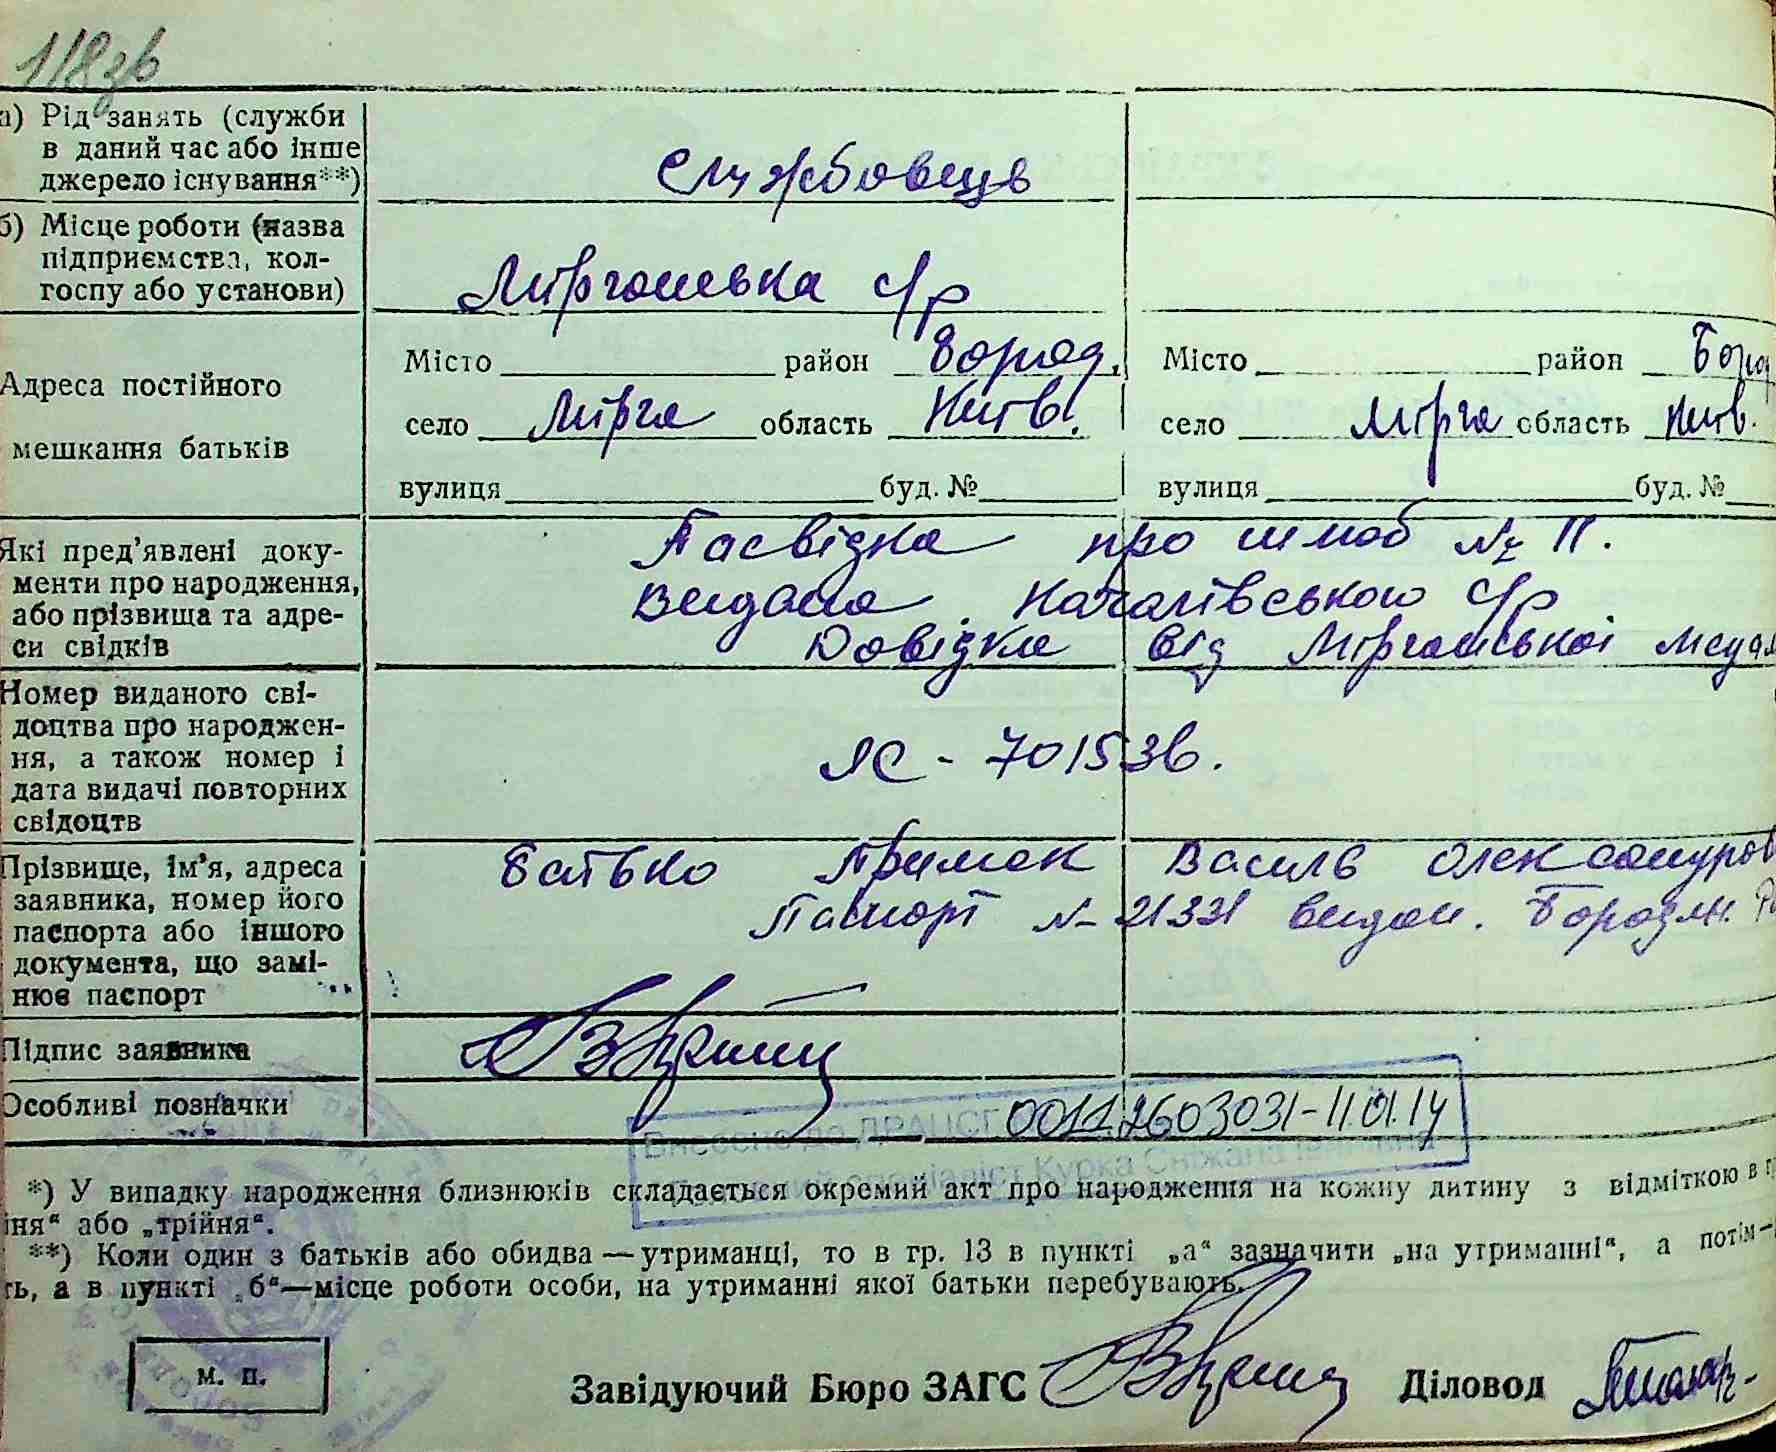 118зв
а) Рід занять (служби
в даний час або інше
джерело існування**)
Службовець
б) Місце роботи (назва
підприємства, кол-
госпу або установи)
с/р
Адреса постійного
мешкання батьків
Місто район Бород.
село Мірча область Київ.
вулиця буд. №
Місто район Бород
село Мірча область Київ.
вулиця буд. №
Які пред’явлені доку-
менти про народження,
або прізвища та адре-
си свідків
Посвідка про шлюб № 11.
Видана Качалівською с/р
Довідка від
Номер виданого сві-
доцтва про народжен-
ня, а також номер і
дата видачі повторних
свідоцтв
ЯС - 701536.
Прізвище, ім’я, адреса
заявника, номер його
паспорта або іншого
документа, що замі-
нює паспорт
Батько Примак Василь Олександров
Паспорт № 21331 видан. Бородян.
Підпис заявника
Особливі позначки
00112603031-11.01.14
Внесено до ДРАЦСГ
спеціаліст Курка Сніжана Іванівна
*) У випадку народження близнюків складається окремий акт про народження на кожну дитину з відміткою в г
йня“ або „трійня“.
**) Коли один з батьків або обидва — утриманці, то в гр. 13 в пункті „а“ зазначити „на утриманні“, а потім—
ть, а в пункті „б“—місце роботи особи, на утриманні якої батьки перебувають.
м. п.
Завідуючий Бюро ЗАГС Діловод